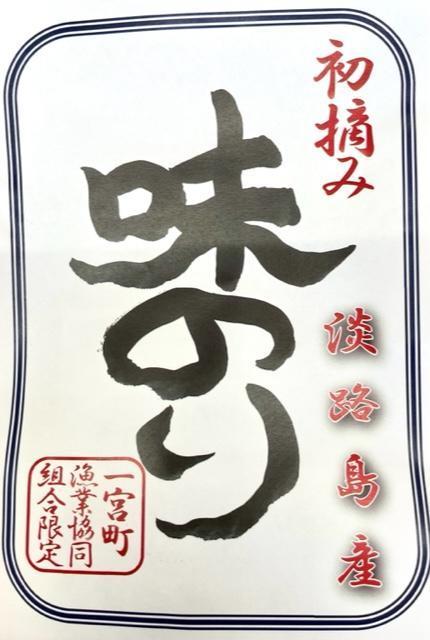 初摘み
淡路島産
味のり
一宮町
漁業協同
組合限定